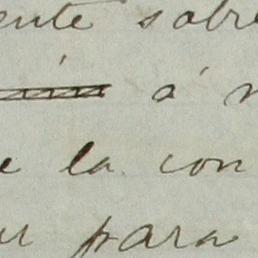 ente sobre
á
e la con
para